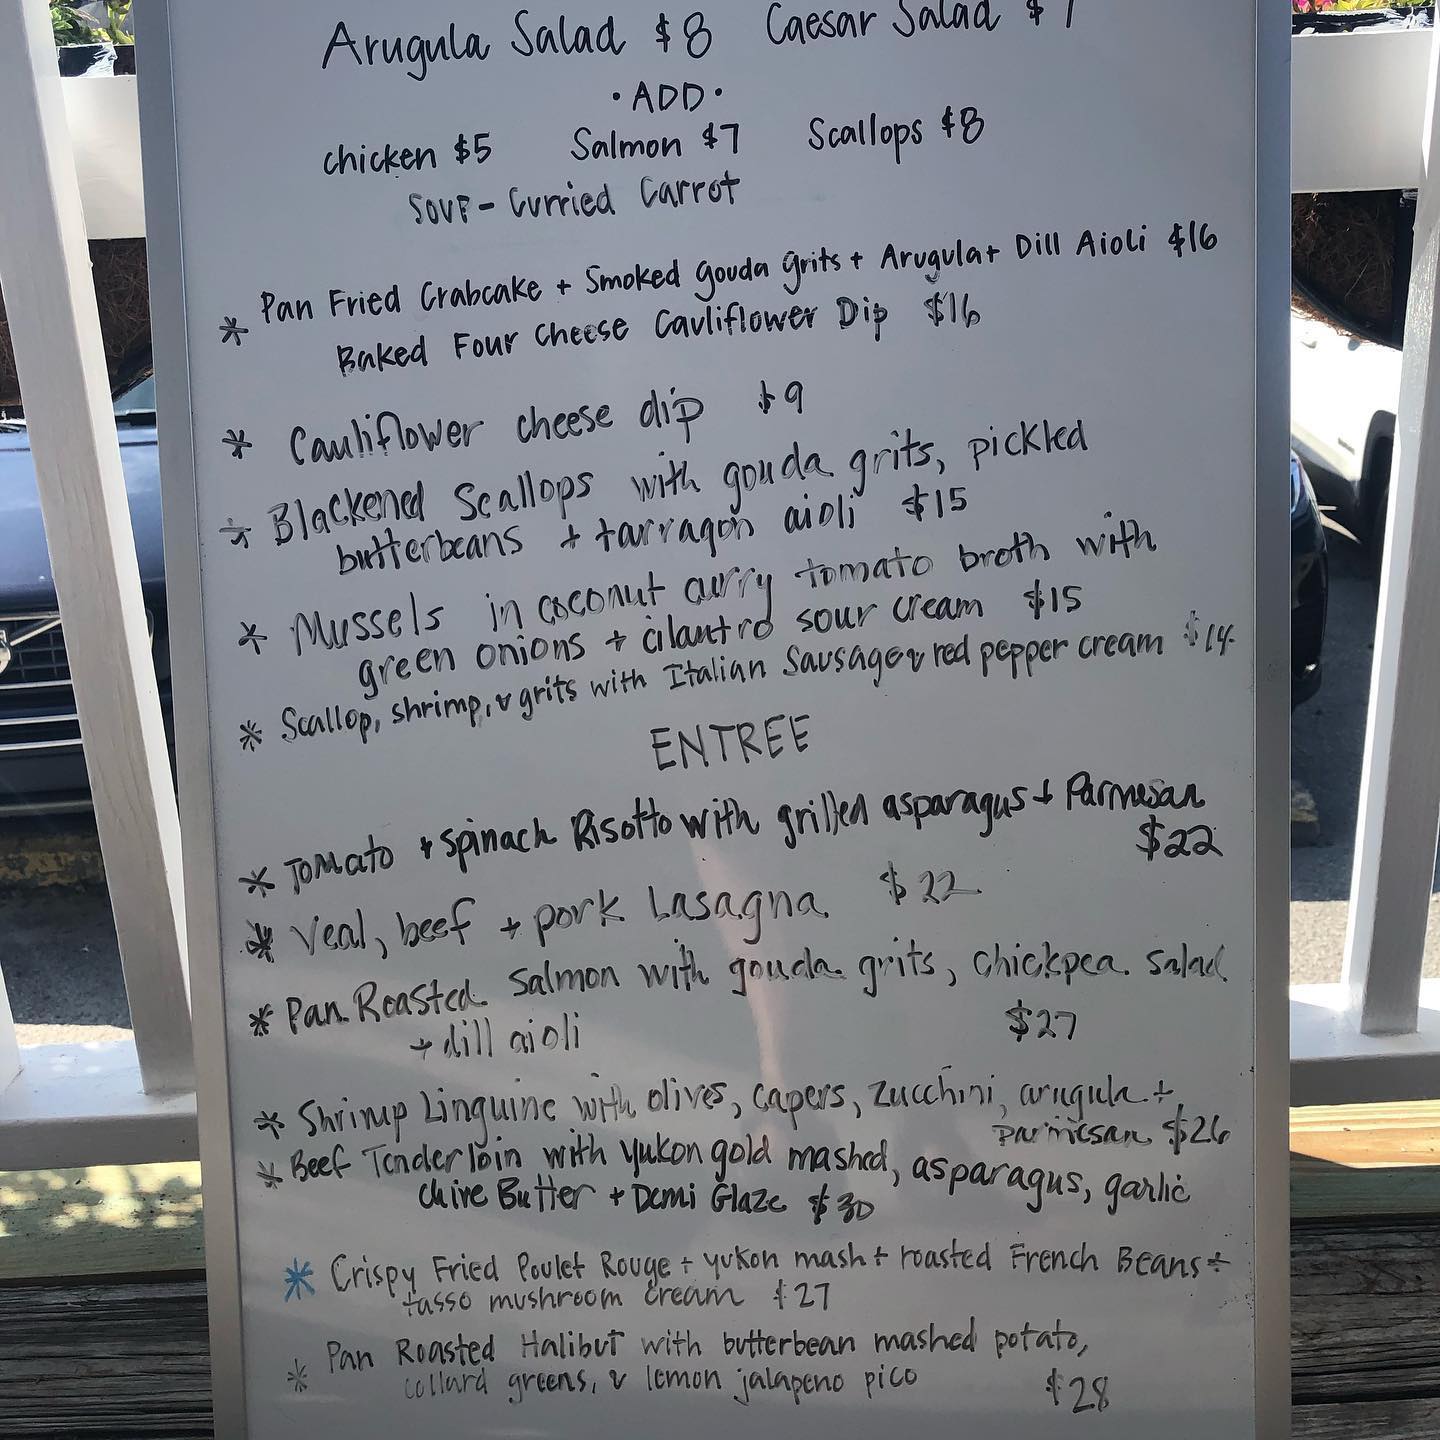 Arugula Salad $8 Caesar Salad $7
• ADD •
chicken $5 Salmon $7 Scallops $8
Soup - Curried Carrot
* Pan Fried Crabcake + Smoked Gouda Grits + Arugula + Dill Aioli $16
Baked Four Cheese Cauliflower Dip $16
* Cauliflower cheese dip $9
* Blackened Scallops with gouda grits, pickled
butterbeans + tarragon aioli $15
* Mussels in coconut curry tomato broth with
green onions + cilantro sour cream $15
* Scallop, shrimp, & grits with Italian Sausage & red pepper cream $14
ENTREE
* Tomato + spinach Risotto with grilled asparagus + Parmesan
$22
* Veal, beef + pork Lasagna $22
* Pan Roasted Salmon with gouda grits, chickpea salad
+ dill aioli $27
* Shrimp Linguine with olives, capers, zucchini, arugula +
parmesan $26
* Beef Tenderloin with yukon gold mashed, asparagus, garlic
chive Butter + Demi Glaze $30
* Crispy Fried Poulet Rouge + yukon mash + roasted French Beans +
tasso mushroom cream $27
* Pan Roasted Halibut with butterbean mashed potato,
collard greens, & lemon jalapeno pico $28